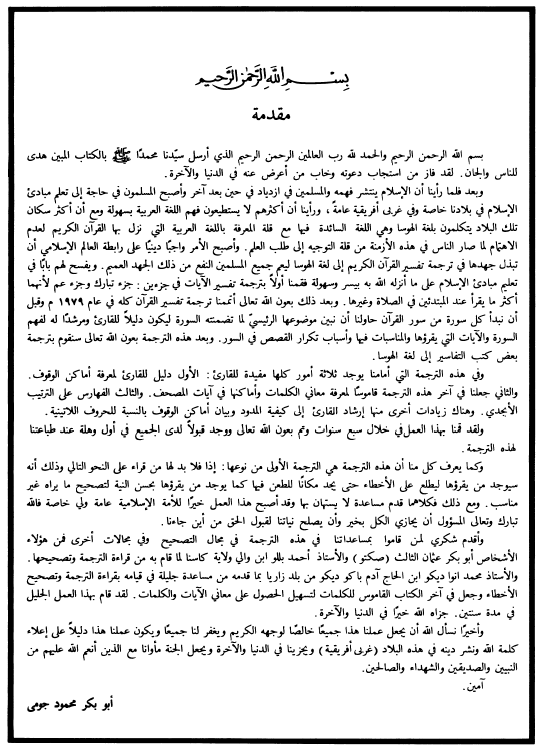 بِسْمِ اللَّهِ الرَّحْمَٰنِ الرَّحِيمِ
مقدمة
بسم الله الرحمن الرحيم والحمد لله رب العالمين الرحمن الرحيم الذي أرسل سيّدنا محمدًا ﷺ بالكتاب المبين هدى
للناس والجان. لقد فاز من استجاب دعوته وخاب من أعرض عنه في الدنيا والآخرة.
وبعد فلما رأينا أن الإسلام ينتشر فهمه والمسلمين في ازدياد في حين بعد آخر وأصبح المسلمون في حاجة إلى تعلم مبادئ
الإسلام في بلادنا خاصة وفي غربى أفريقية عامةً، ورأينا أن أكثرهم لا يستطيعون فهم اللغة العربية بسهولة ومع أن أكثر سكان
تلك البلاد يتكلمون بلغة الهوسا وهي اللغة السائدة فيها مع قلة المعرفة باللغة العربية التي نزل بها القرآن الكريم لعدم
الاهتمام لما صار الناس في هذه الأزمنة من قلة التوجيه إلى طلب العلم. وأصبح الأمر واجبًا دينيًا على رابطة العالم الإسلامي أن
تبذل جهدها في ترجمة تفسير القرآن الكريم إلى لغة الهوسا ليعم جميع المسلمين النفع من ذلك الجهد العميم. ويفسح لهم بابًا في
تعليم مبادئ الإسلام على ما أنزله الله به بيسر وسهولة فقمنا أولاً بترجمة تفسير الآيات في جزءين: جزء تبارك وجزء عم لأنهما
أكثر ما يقرأ عند المبتدئين في الصلاة وغيرها. وبعد ذلك بعون الله تعالى أتممنا ترجمة تفسير القرآن كله في عام ١٩٧٩ م وقبل
أن نبدأ كل سورة من سور القرآن حاولنا أن نبين موضوعها الرئيسيّ لما تضمنته السورة ليكون دليلاً للقارئ ومرشدًا له لفهم
السورة والآيات التي يقرؤها والمناسبات فيها وأسباب تكرار القصص في السور. وبعد هذه الترجمة بعون الله تعالى سنقوم بترجمة
بعض كتب التفاسير إلى لغة الهوسا.
وفي هذه الترجمة التي أمامنا يوجد ثلاثة أمور كلها مفيدة للقارئ: الأول دليل للقارئ لمعرفة أماكن الوقوف.
والثاني جعلنا في آخر هذه الترجمة قاموسًا لمعرفة معاني الكلمات وأماكنها في آيات المصحف. والثالث الفهارس على الترتيب
الأبجدي. وهناك زيادات أخرى منها إرشاد القارئ إلى كيفية المدود وبيان أماكن الوقوف بالنسبة للحروف اللاتينية.
ولقد قمنا بهذا العمل في خلال سبع سنوات وتم بعون الله تعالى ووجد قبولاً لدى الجميع في أول وهلة عند طباعتنا
لهذه الترجمة.
وكما يعرف كل منا أن هذه الترجمة هي الترجمة الأولى من نوعها: إذا فلا بد لها من قراء على النحو التالي وذلك أنه
سيوجد من يقرؤها ليطلع على الأخطاء حتى يجد مكانًا للطعن فيها كما يوجد من يقرؤها بحسن النية لتصحيح ما يراه غير
مناسب. ومع ذلك فكلاهما قدم مساعدة لا يستهان بها وقد أصبح هذا العمل خيرًا للأمة الإسلامية عامة ولي خاصة فالله
تبارك وتعالى المسؤول أن يجازي الكل بخير وأن يصلح نياتنا لقبول الحق من أين جاءنا.
وأقدم شكري لمن قاموا بمساعداتنا في هذه الترجمة في مجال التصحيح وفي مجالات أخرى فمن هؤلاء
الأشخاص أبو بكر عثمان الثالث (صكتو) والأستاذ أحمد بللو ابن والي ولاية كاسنا لما قام به من قراءة الترجمة وتصحيحها.
والأستاذ محمد انوا ديكو ابن الحاج آدم باكو ديكو من بلد زاريا بما قدمه من مساعدة جليلة في قيامه بقراءة الترجمة وتصحيح
الأخطاء وجعل في آخر الكتاب القاموس للكلمات لتسهيل الحصول على معاني الآيات والكلمات. لقد قام بهذا العمل الجليل
في مدة سنتين. جزاه الله خيرًا في الدنيا والآخرة.
وأخيرًا نسأل الله أن يجعل عملنا هذا جميعًا خالصًا لوجهه الكريم ويغفر لنا جميعًا ويكون عملنا هذا دليلاً على إعلاء
كلمة الله ونشر دينه في هذه البلاد (غربى أفريقية) ويجزينا في الدنيا والآخرة ويجعل الجنة مأوانا مع الذين أنعم الله عليهم من
النبيين والصديقين والشهداء والصالحين.
آمين.
أبو بكر محمود جومى